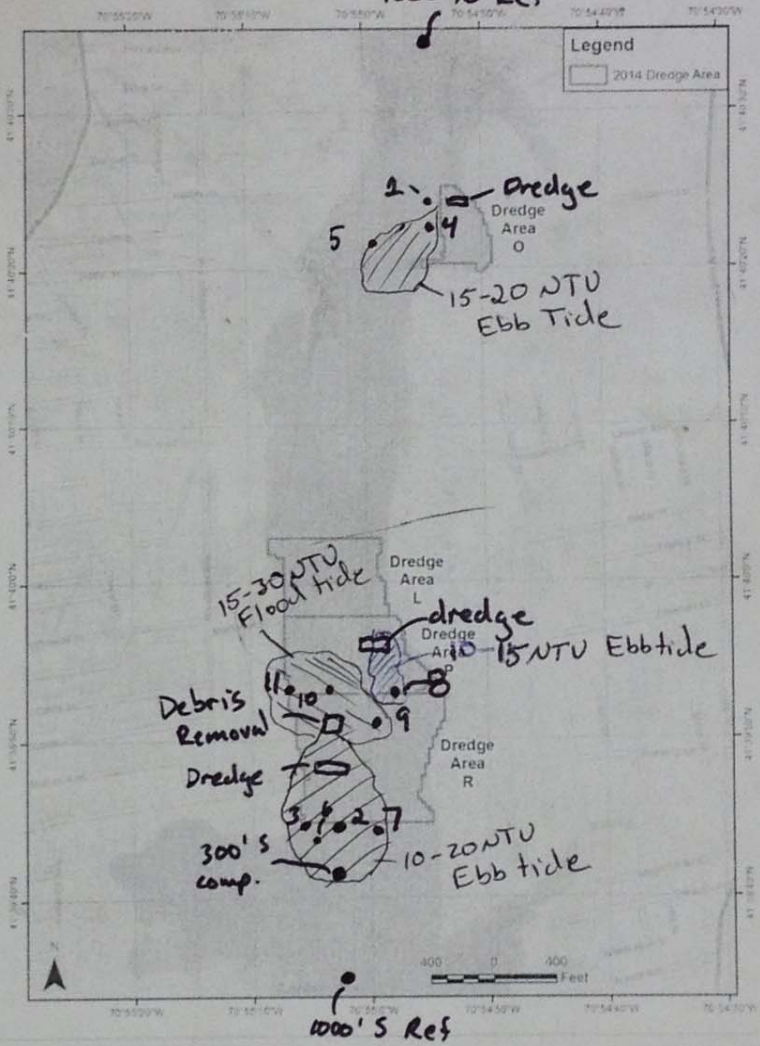 70°55'20"W 70°55'10"W 70°55'0"W 70°54'50"W 70°54'40"W 70°54'30"W
Legend
2014 Dredge Area
1
Dredge
Dredge
Area
O
4
5
15-20 NTU
Ebb Tide
Dredge
Area
L
15-30 NTU
Flood tide
dredge
Dredge
Area
P
15 NTU Ebb tide
11
10
8
9
Debris
Removal
Dredge
Dredge
Area
R
3
2
7
300' S
comp.
10-20 NTU
Ebb tide
N
400 0 400
Feet
1000' S Ref
70°55'20"W 70°55'10"W 70°55'0"W 70°54'50"W 70°54'40"W 70°54'30"W